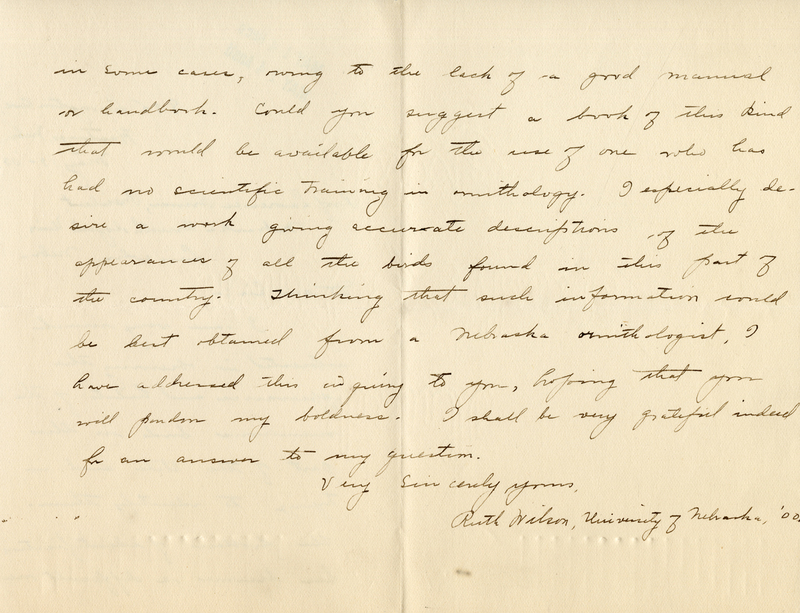 in some cases, owing to the lack of a good manual
or handbook. Could you suggest a book of this kind
that would be available for the use of one who has
had no scientific training in ornithology. I especially de-
sire a work giving accurate descriptions of the
appearances of all the birds found in this part of
the country. Thinking that such information could
be best obtained from a Nebraska ornithologist, I
have addressed this inquiry to you, hoping that you
will pardon my boldness. I shall be very grateful indeed
for an answer to my question.
Very Sincerely yours,
Ruth Wilson, University of Nebraska, '00.